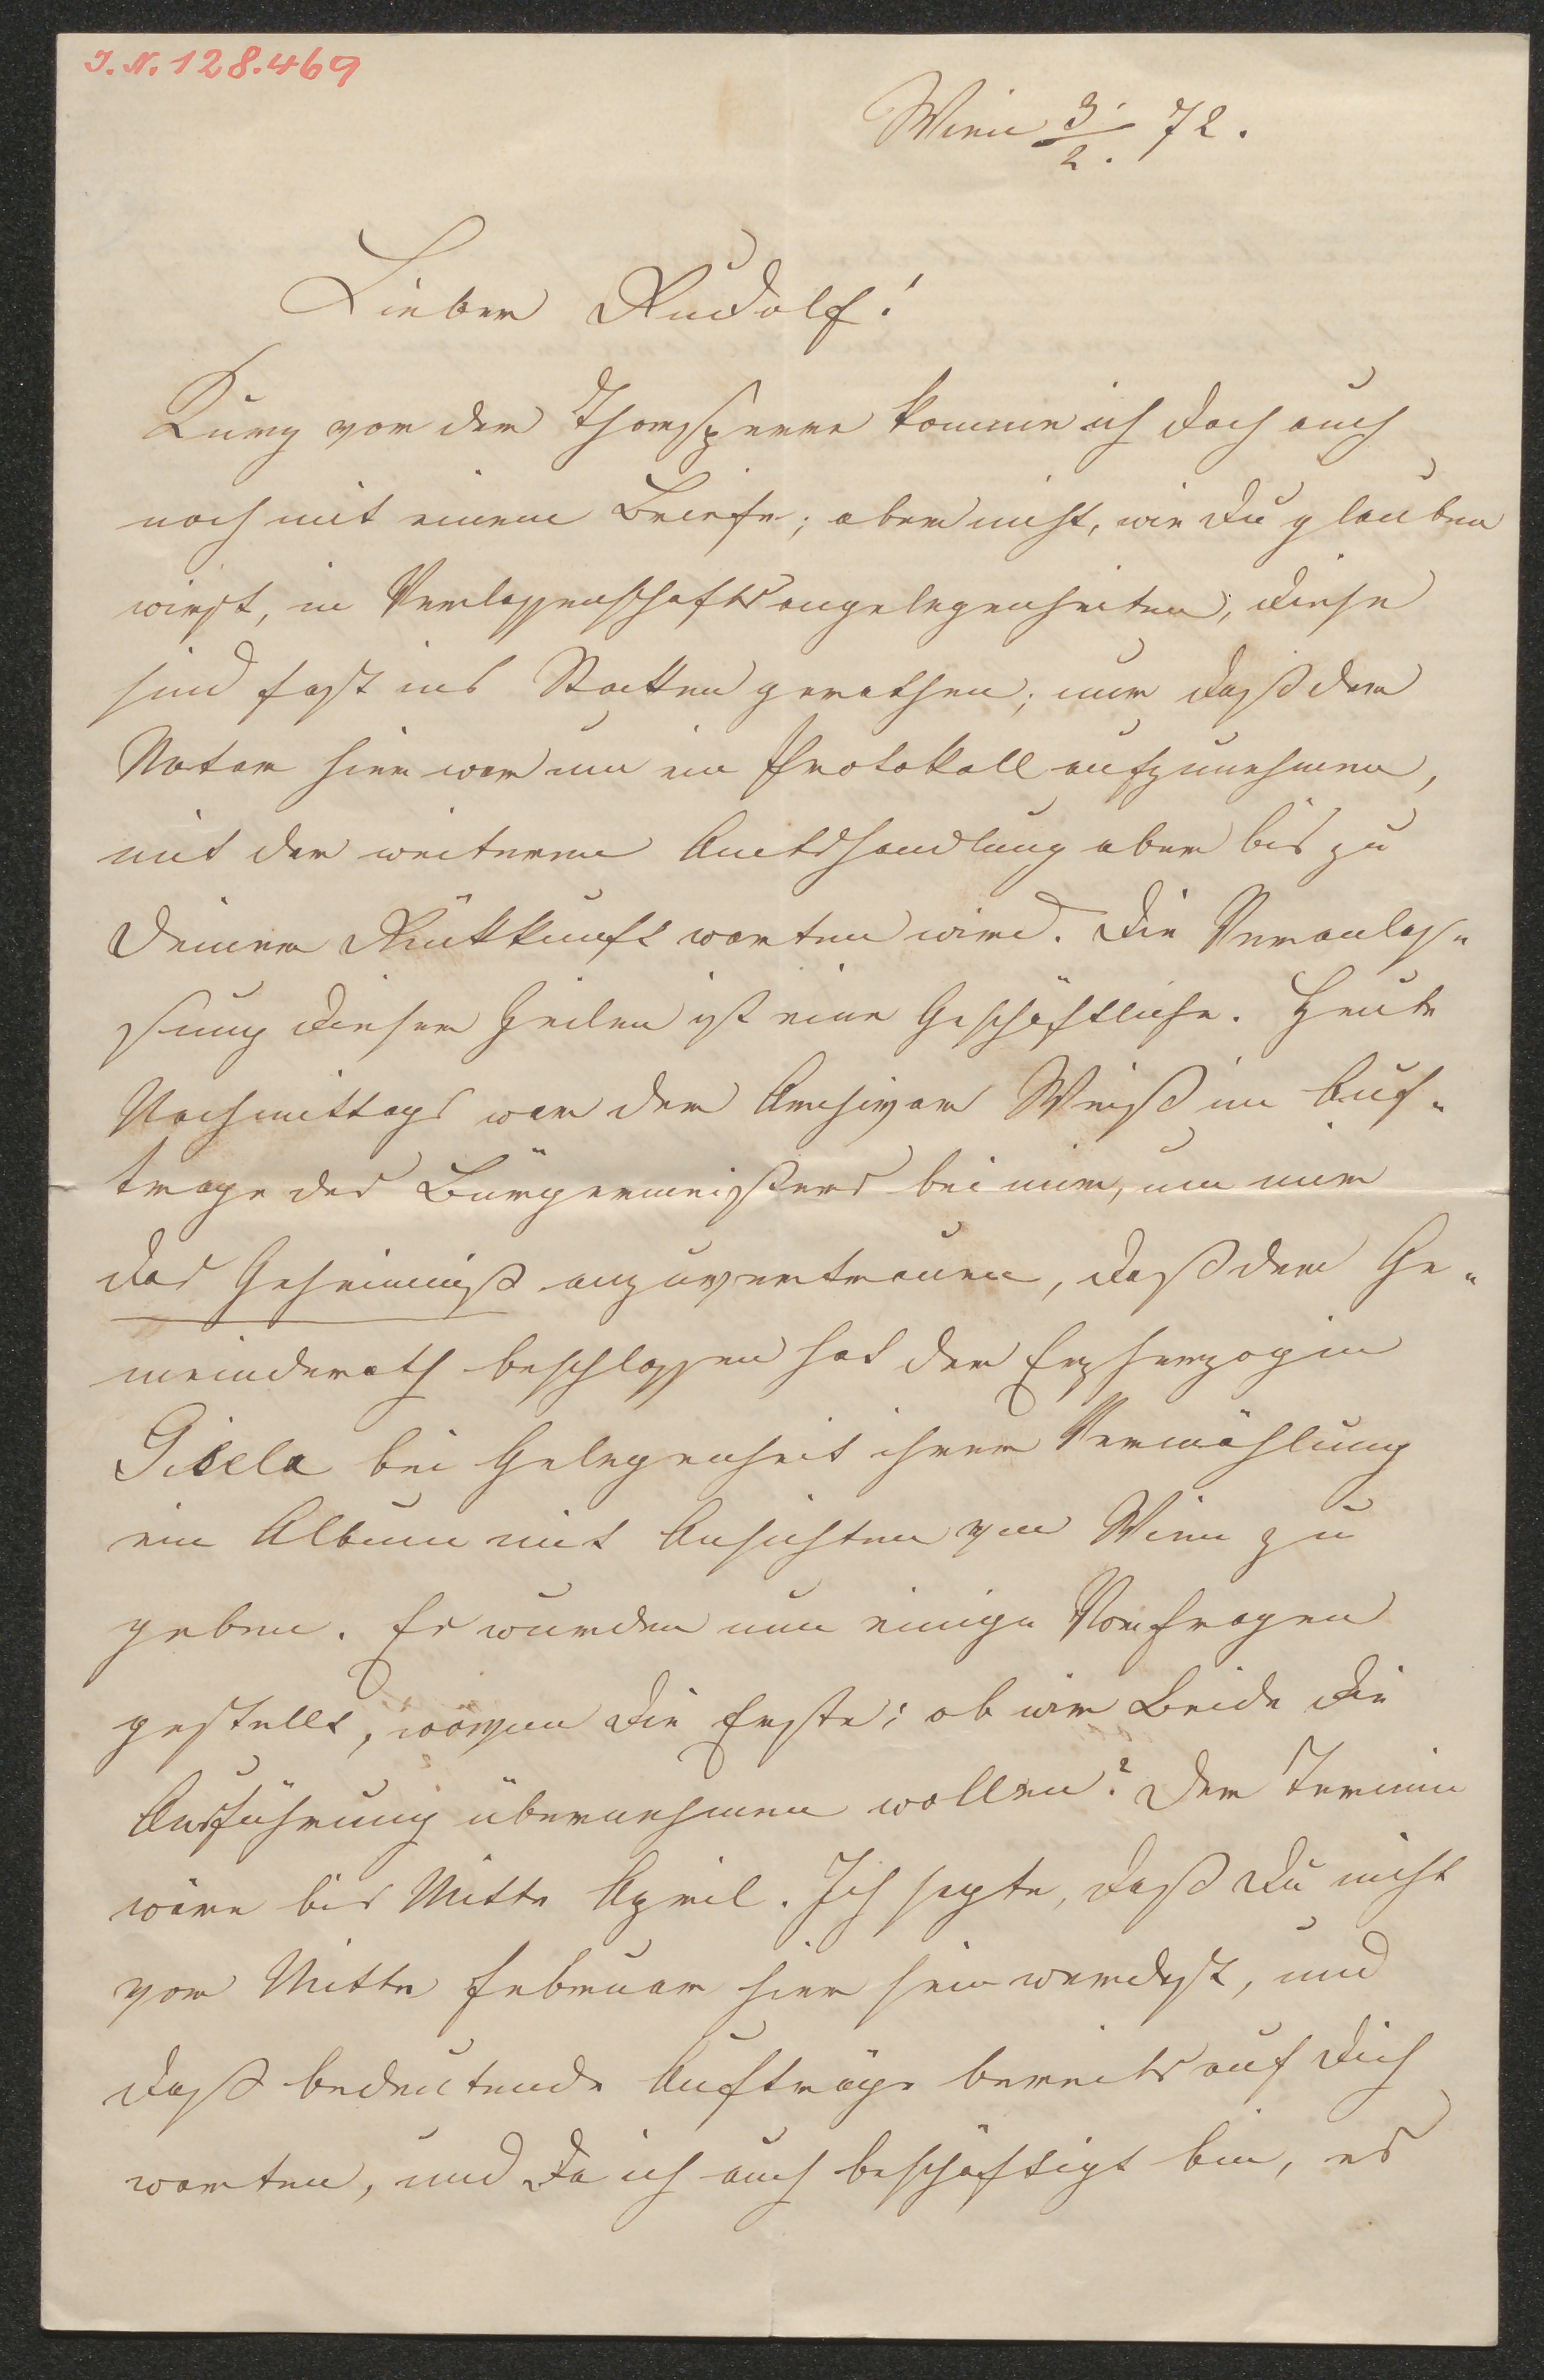 J. N. 128.469
Wien 3./2. 72.
Lieber Rudolf!
Kurz vor der Thorsperre komme ich doch auch
noch mit einem Briefe; aber nicht, wie Du glauben
wirst, in Verlassenschaftsangelegenheiten, diese
sind fast ins Stocken gerathen; nur daß der
Notar hier war um ein Protokoll aufzunehmen,
mit der weiteren Amtshandlung aber bis zu
Deiner Rükkunft warten wird. Die Veranlas-
sung dieser Zeilen ist eine Geschäftliche. Heute
Nachmittags war der Archivar Weiß im Auf-
trage des Bürgermeisters bei mir, um mir
das Geheimniß anzuvertrauen, daß der Ge-
meinderath beschlossen hat der Erzherzogin
Gisela bei Gelegenheit ihrer Vermählung
ein Album mit Ansichten von Wien zu
geben. Es wurden nun einige Vorfragen
gestellt, wovon die Erste: ob wir Beide die
Ausführung übernehmen wollen? Der Termin
wäre bis Mitte April. Ich sagte, daß Du nicht
vor Mitte Februar hier sein werdest, und
daß bedeutende Aufträge bereits auf Dich
warten, und da ich auch beschäftigt bin, es